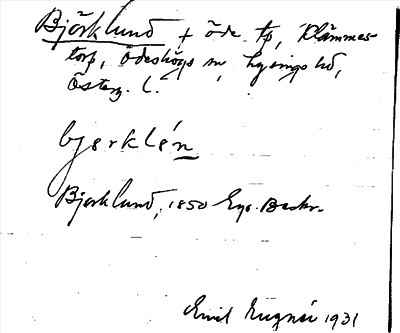 Björklund + öde tp, Klämmes-
torp, Ödeshögs sn, Lysings hd,
Österg. l.
bjerklén
Bjerklund, 1850 Ego. Beskr.
Emil 1931